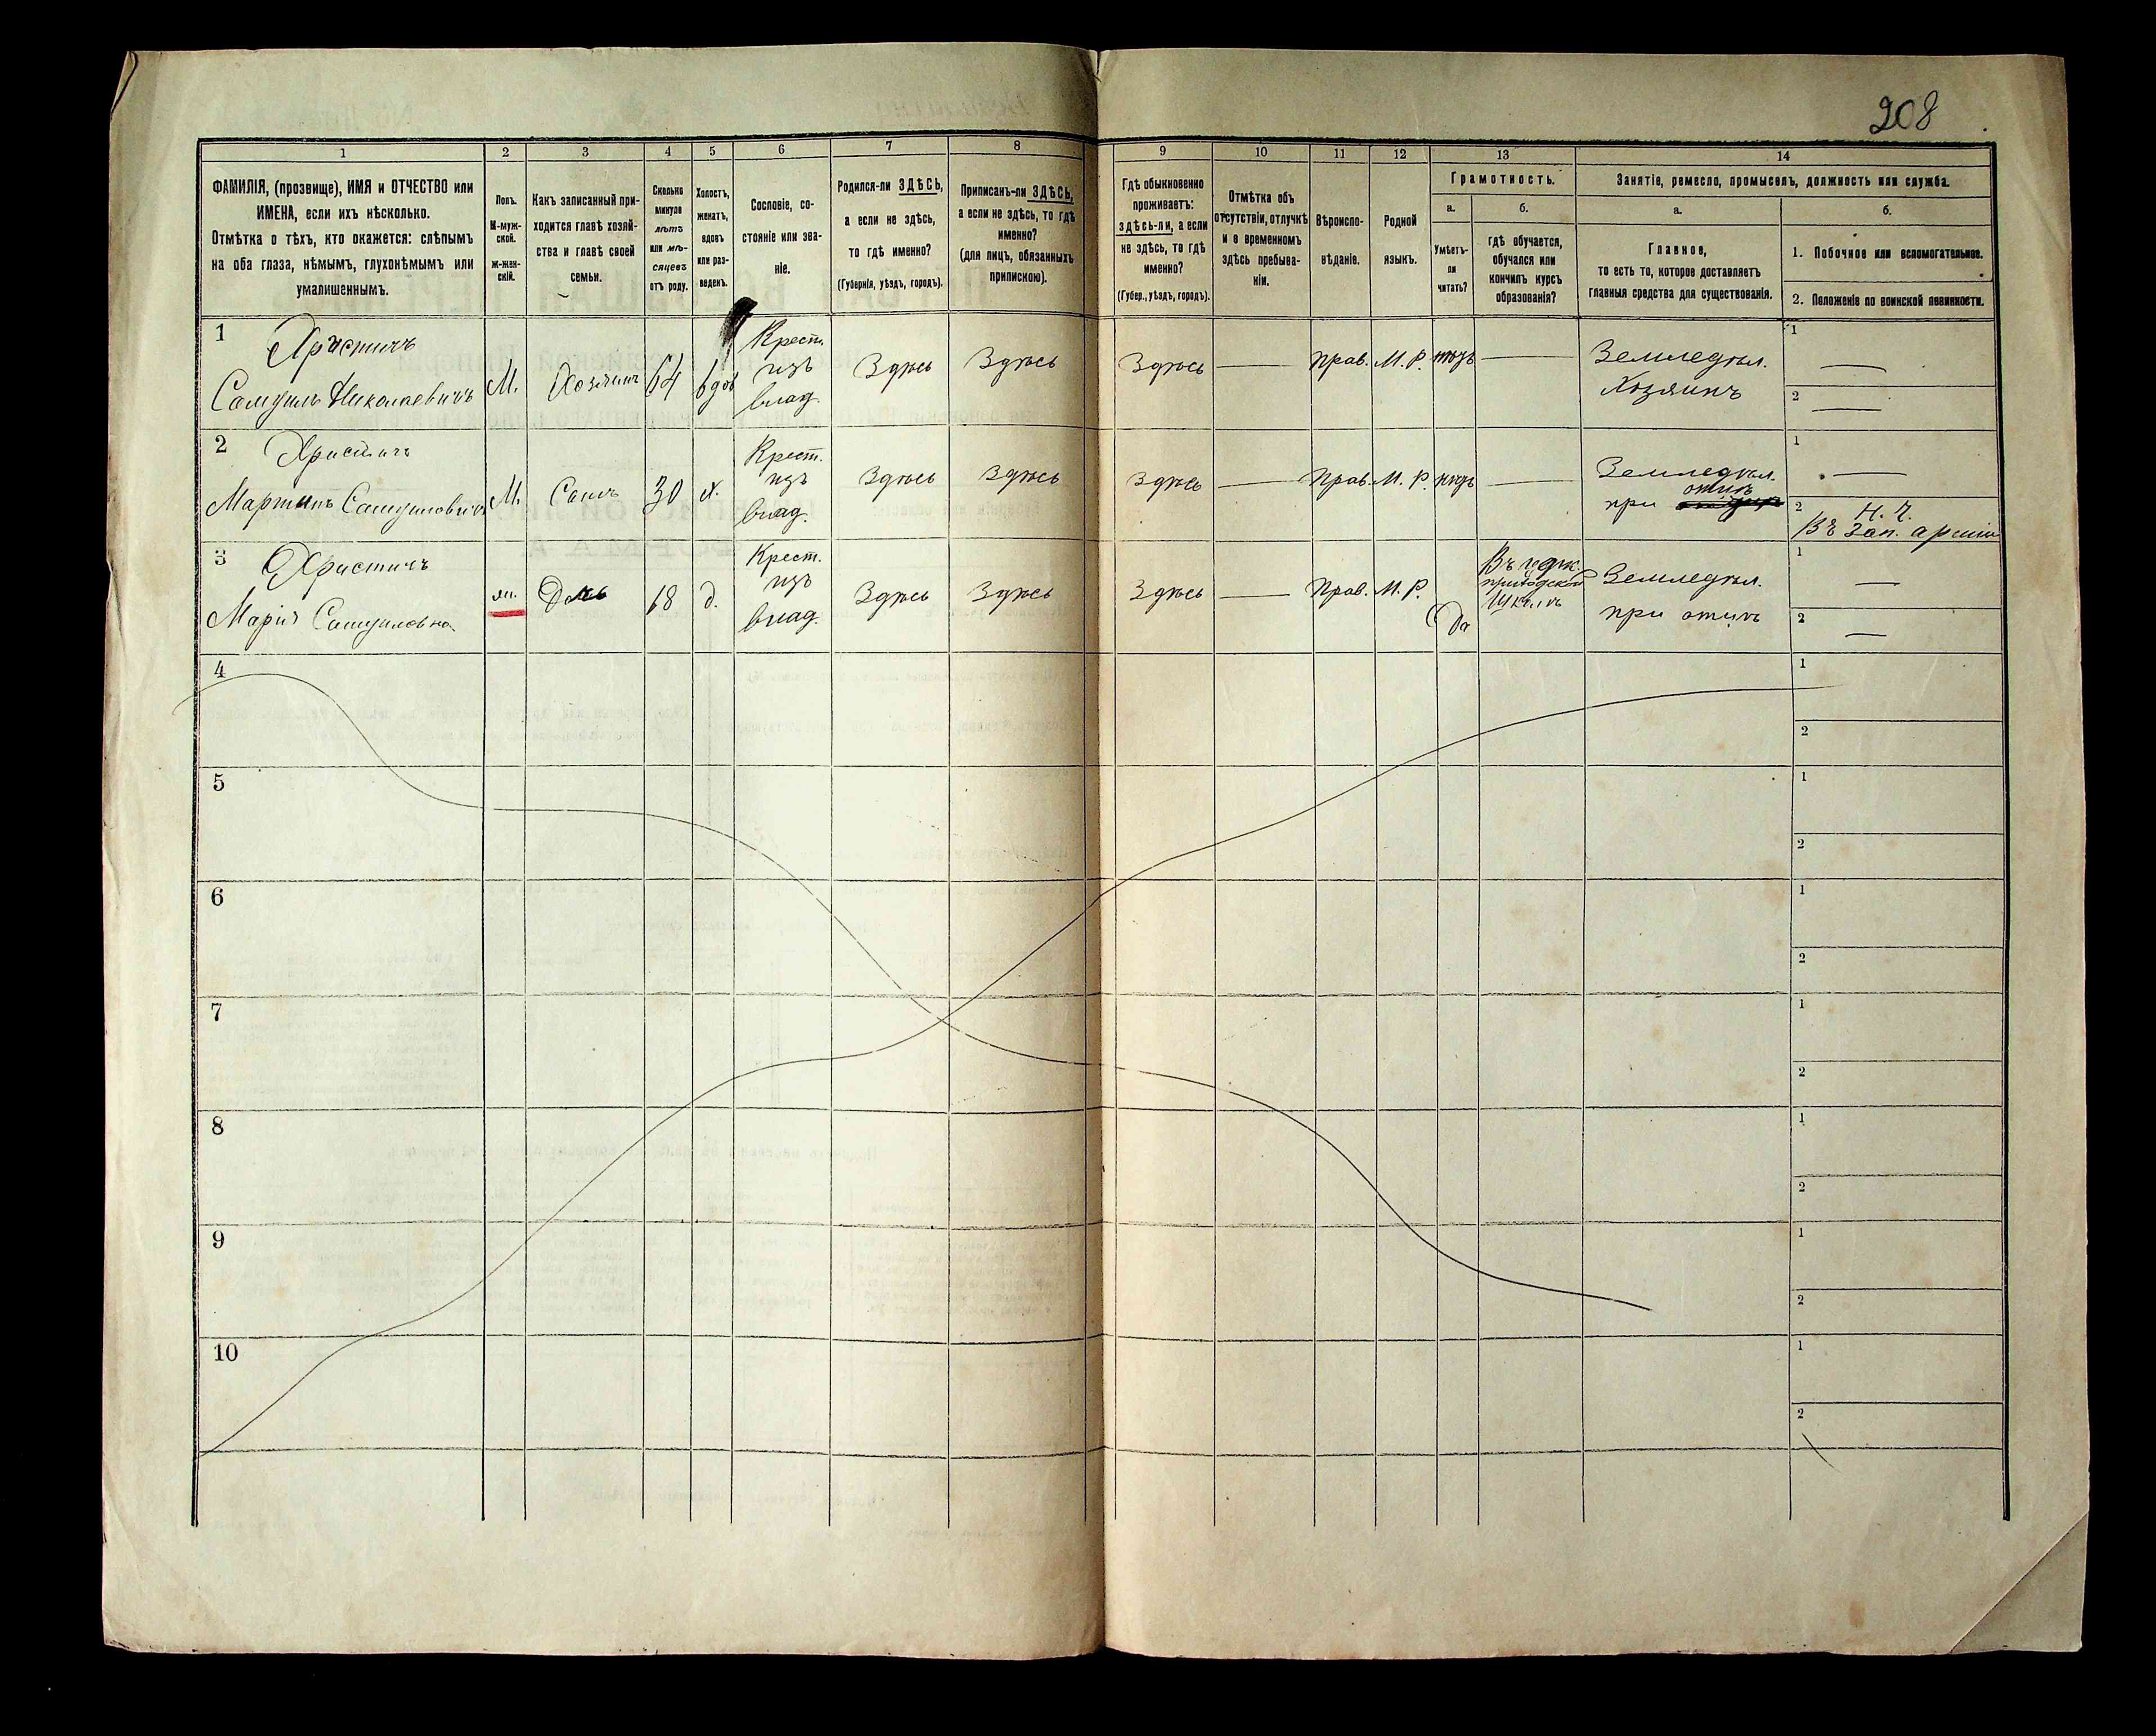 208
1
2
3
4
5
6
7
8
9
10
11
12
13
14
ФАМИЛІЯ, (прозвище), ИМЯ и ОТЧЕСТВО или
ИМЕНА, если ихъ нѣсколько.
Отмѣтка о тѣхъ, кто окажется: слѣпымъ
на оба глаза, нѣмымъ, глухонѣмымъ или
умалишеннымъ.
Полъ.
М-муж-
ской.
ж-жен-
скій.
Какъ записанный при-
ходится главѣ хозяй-
ства и главѣ своей
семьи.
Сколько
минуло
лѣтъ
или мѣ-
сяцевъ
отъ роду.
Холостъ,
женатъ,
вдовъ
или раз-
веденъ.
Сословіе, со-
стояніе или зва-
ніе.
Родился-ли ЗДѢСЬ,
а если не здѣсь,
то гдѣ именно?
(Губернія, уѣздъ, городъ).
Приписанъ-ли ЗДѢСЬ,
а если не здѣсь, то гдѣ
именно?
(для лицъ, обязанныхъ
припискою).
Гдѣ обыкновенно
проживаетъ:
здѣсь-ли, а если
не здѣсь, то гдѣ
именно?
(Губер., уѣздъ, городъ).
Отмѣтка объ
отсутствіи, отлучкѣ
и о временномъ
здѣсь пребыва-
ніи.
Вѣроиспо-
вѣданіе.
Родной
языкъ.
Грамотность.
а.
Умѣетъ-
ли
читать?
б.
гдѣ обучается,
обучался или
кончилъ курсъ
образованія?
Занятіе, ремесло, промыселъ, должность или служба.
а.
Главное,
то есть то, которое доставляетъ
главныя средства для существованія.
б.
1. Побочное или вспомогательное.
2. Положеніе по воинской повинности.
1
Христичъ
Самуилъ Николаевичъ
М.
Хозяинъ
64
вдов
Крест.
изъ
влад.
Здѣсь
Здѣсь
Здѣсь
Прав.
М. Р.
нѣтъ
Земледѣл.
Хозяинъ
1
2
2
Христичъ
Мартинъ Самуиловичъ
М.
Сынъ
30
х.
Крест.
изъ
влад.
Здѣсь
Здѣсь
Здѣсь
Прав.
М. Р.
нѣтъ
Земледѣл.
при отцѣ
1
2
Н. Ч.
Въ Зап. арміи
3
Христичъ
Марія Самуиловна
ж.
Дочь
18
д.
Крест.
изъ
влад.
Здѣсь
Здѣсь
Здѣсь
Прав.
М. Р.
Да
приходской
школѣ
Земледѣл.
при отцѣ
1
2
4
1
2
5
1
2
6
1
2
7
1
2
8
1
2
9
1
2
10
1
2